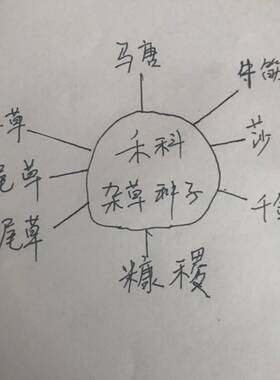 马唐
牛筋
草
莎
禾科
尾草
杂草种子
千金
尾草
糠稷